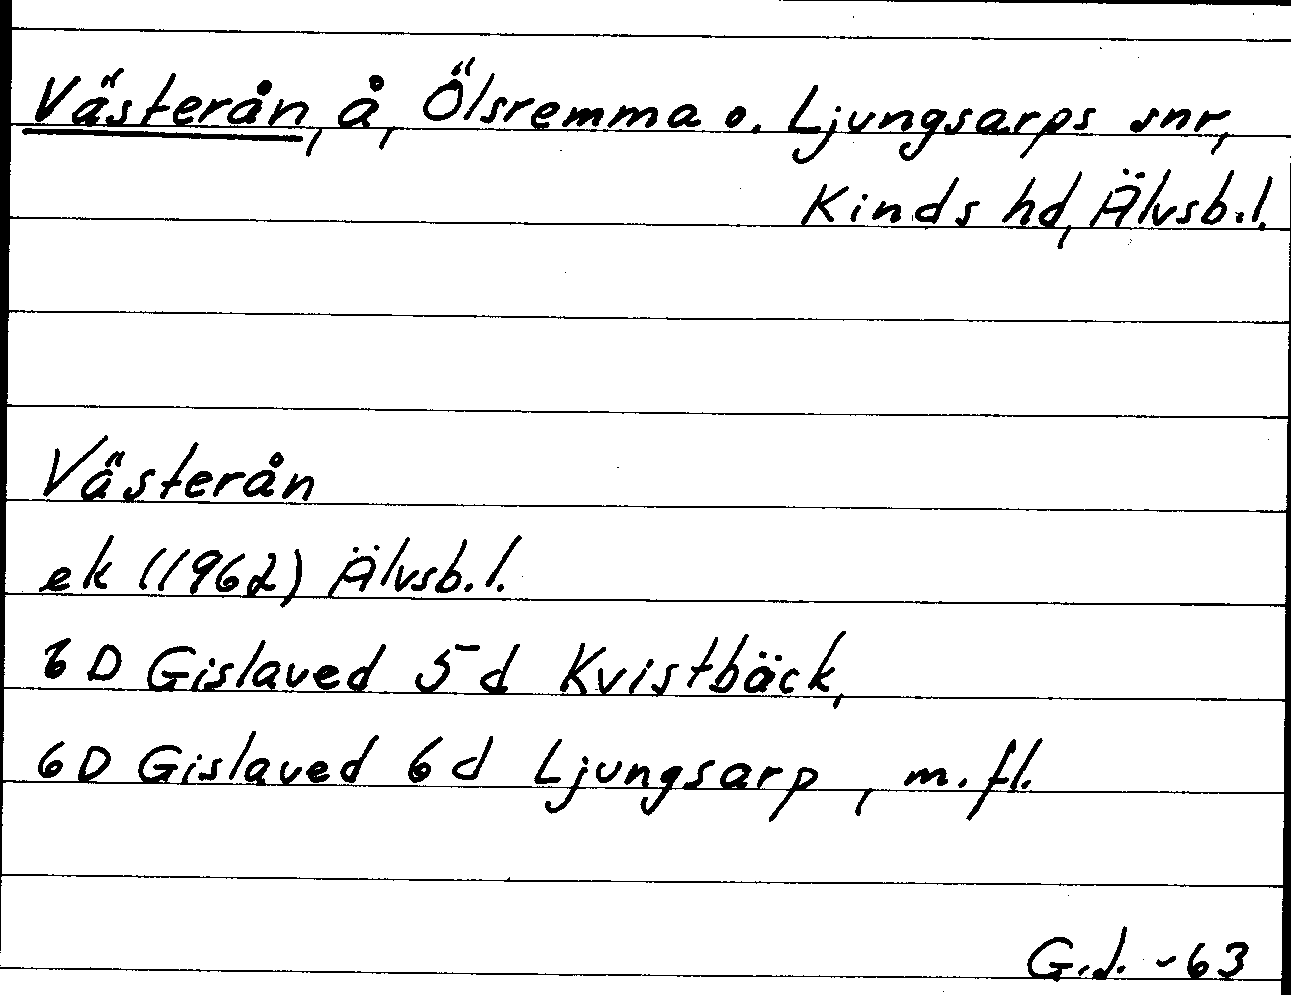 Västerån, å, Ölsremma o. Ljungsarps snr,
Kinds hd, Älvsb.l.
Västerån
ek (1962) Älvsb.l.
6D Gislaved 5d Kvistbäck,
6D Gislaved 6d Ljungsarp, m.fl.
G.J. -63